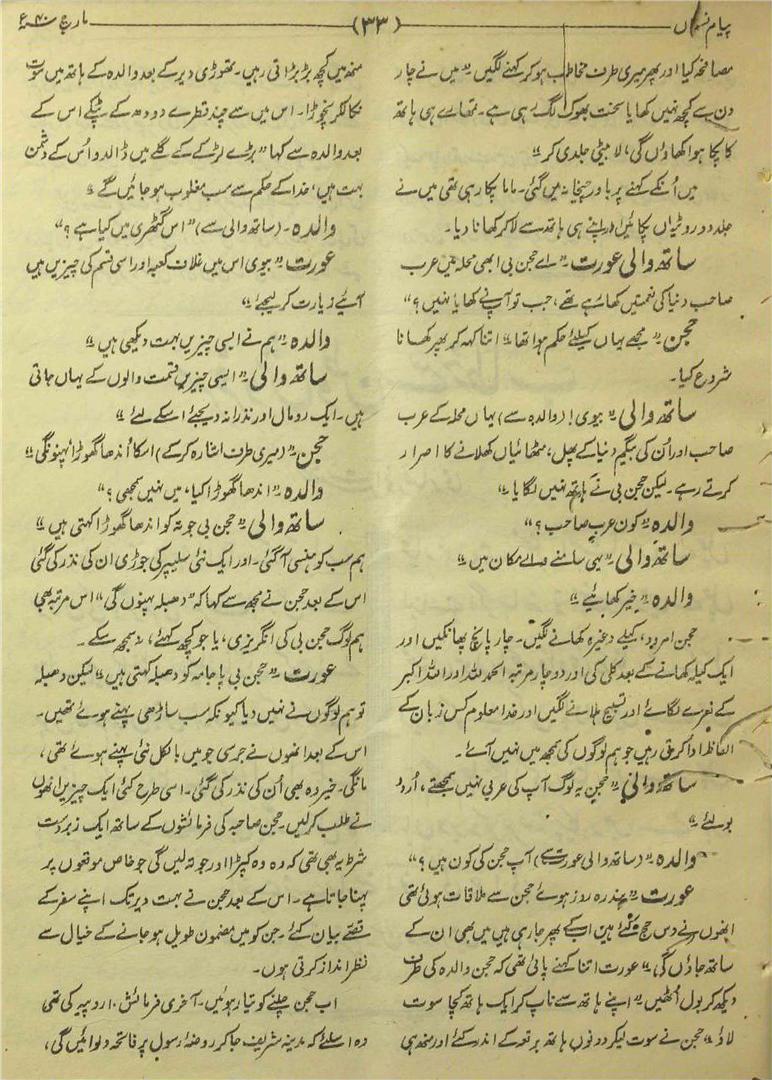 پیام نسواں
(۳۳)
مارچ ۴۰ء
مصافحہ کیا اور پھر میری طرف مخاطب ہو کر کہنے لگیں ”میں نے چار
دن سے کچھ نہیں کھایا سخت بھوک لگ رہی ہے۔ تمھارے ہی ہاتھ
کا پکا ہوا کھاؤں گی، لا بیٹی جلدی کر“
میں اُنکے کہنے پر باورچیخانہ میں گئی۔ ماما پکا رہی تھی میں نے
جلد دو روٹیاں پکائیں اور اپنے ہی ہاتھ سے لا کر کھانا دیا۔
ساتھ والی عورت ”اے حجن بی ابھی محلہ میں عرب
صاحب دنیا کی نعمتیں کھا رہے تھے، جب تو آپ نے کھایا نہیں؟“
حجن ”مجھے یہاں کیلئے حکم ہوا تھا“ اتنا کہہ کر پھر کھانا
شروع کیا۔
ساتھ والی ”بیوی! (والدہ سے) یہاں محلہ کے عرب
صاحب اور اُن کی بیگم دنیا کے پھل، مٹھائیاں کھلانے کا اصرار
کرتے رہے۔ لیکن حجن بی نے ہاتھ نہیں لگایا“
والدہ ”کون عرب صاحب؟“
ساتھ والی ”یہی سامنے والے مکان میں“
والدہ ”خیر کھائیے“
حجن امرود، کیلے وغیرہ کھانے لگیں۔ چار پانچ پھانکیں اور
ایک کیلہ کھانے کے بعد کلی کی اور دو چار مرتبہ الحمد للہ اور اللہ اکبر
کے نعرے لگائے اور تسبیح ہلانے لگیں اور خدا معلوم کس زبان کے
الفاظ ادا کرتی رہیں جو ہم لوگوں کی سمجھ میں نہیں آئے۔
ساتھ والی ”حجن یہ لوگ آپ کی عربی نہیں سمجھتے، اُردو
بولئے“
والدہ ”(ساتھ والی عورت سے) آپ حجن کی کون ہیں؟“
عورت ”پندرہ روز ہوئے حجن سے ملاقات ہوئی تھی
انھوں نے دس حج کئے ہیں اب کے پھر جا رہی ہیں میں بھی ان کے
ساتھ جاؤں گی“ عورت اتنا کہنے پائی تھی کہ حجن والدہ کی طرف
دیکھ کر بول اُٹھیں ”اپنے ہاتھ سے ناپ کر ایک ہاتھ کچا سوت
لاؤ“ حجن نے سوت لیکر دونوں ہاتھ برقعہ کے اندر کئے اور منھ ہی
منھ میں کچھ بڑبڑاتی رہیں۔ تھوڑی دیر کے بعد والدہ کے ہاتھ میں سوت
نکالکر نچوڑا۔ اس میں سے چند قطرے دودھ کے ٹپکے اس کے
بعد والدہ سے کہا ”بڑے لڑکے کے گلے میں ڈالدو اُس کے دشمن
بہت ہیں، خدا کے حکم سے سب مغلوب ہو جائیں گے“
والدہ۔ (ساتھ والی سے) ”اس گٹھری میں کیا ہے؟“
عورت ”بیوی اس میں غلاف کعبہ اور اسی قسم کی چیزیں ہیں
آیئے زیارت کر لیجئے“
والدہ ”ہم نے ایسی چیزیں بہت دیکھی ہیں“
ساتھ والی ”ایسی چیزیں قسمت والوں کے یہاں جاتی
ہیں۔ ایک رومال اور نذرانہ دیجئے اسکے لئے“
حجن ”(میری طرف اشارہ کر کے) اسکا اُندھا گھوڑا پہنونگی“
والدہ ”اندھا گھوڑا کیا، میں نہیں سمجھی؟“
ساتھ والی ”حجن بی جوتہ کو اندھا گھوڑا کہتی ہیں“
ہم سب کو ہنسی آ گئی۔ اور ایک نئی سلیپر کی جوڑی ان کی نذر کی گئی
اس کے بعد حجن نے مجھ سے کہا کہ ”دھبلہ پہنوں گی“ اس مرتبہ بھی
ہم لوگ حجن بی کی انگریزی، یا جو کچھ کہئے، نہ سمجھ سکے۔
عورت ”حجن بی پاجامہ کو دھبلہ کہتی ہیں“ لیکن دھبلہ
تو ہم لوگوں نے نہیں دیا کیونکہ سب ساڑھی پہنے ہوئے تھیں۔
اس کے بعد انھوں نے جرسی جو میں بالکل نئی پہنے ہوئے تھی،
مانگی۔ خیر وہ بھی اُن کی نذر کی گئی۔ اسی طرح کئی ایک چیزیں انھوں
نے طلب کر لیں۔ حجن صاحبہ کی فرمائشوں کے ساتھ ایک زبردست
شرط یہ بھی تھی کہ وہ وہ کپڑا اور جوتہ لیں گی جو خاص موقعوں پر
پہنا جاتا ہے۔ اس کے بعد حجن نے بہت دیر تک اپنے سفر کے
قصے بیان کئے۔ جن کو میں مضمون طویل ہو جانے کے خیال سے
نظر انداز کرتی ہوں۔
اب حجن چلنے کو تیار ہوئیں۔ آخری فرمائش ۱۰ روپیہ کی تھی
وہ اسلئے کہ مدینہ شریف جا کر روضۂ رسول پر فاتحہ دلوائیں گی،